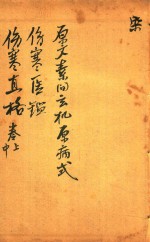 原文素问玄机原病式
伤寒医鑑
伤寒直格 卷上中